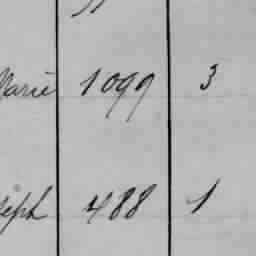 Marie 1099 3
eph 488 1